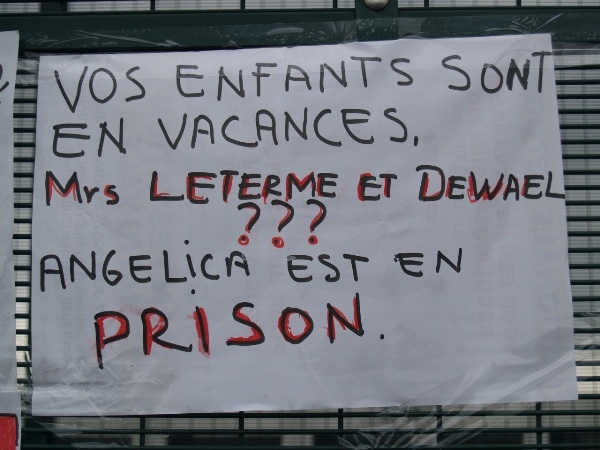 VOS ENFANTS SONT
EN VACANCES,
Mrs LETERME ET DEWAEL
???
ANGELiCA EST EN
PRISON.